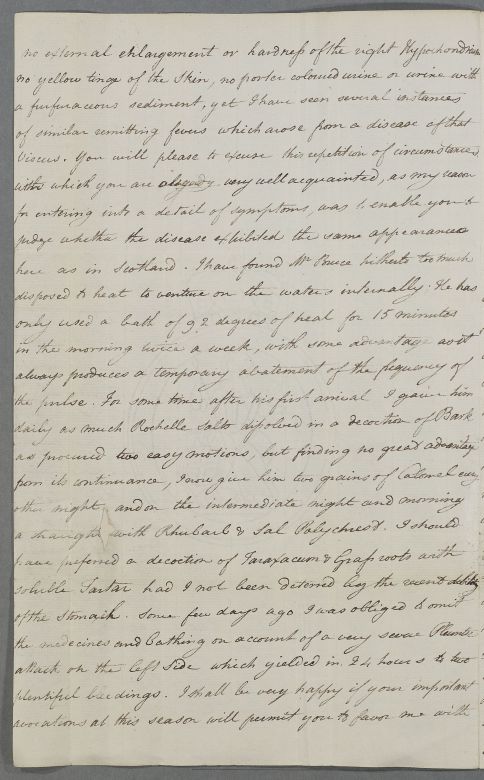 no external enlargement or hardness of the right Hypochondrium
no yellow tinge of the Skin, no porter coloured urine or urine with
a furfuraceous sediment, yet I have seen several instances
of similar remitting fevers which arose from a disease of that
Viscus. You will please to excuse this repetition of circumstances
with which you are already very well acquainted, as my reason
for entering into a detail of symptoms, was to enable you to
judge whether the disease exhibited the same appearances
here as in Scotland. I have found Mr Bruce hitherto too much
disposed to heat to venture on the waters internally. He has
only used a bath of 92 degrees of heat for 15 minutes
in the morning twice a week, with some advantage as it
always produces a temporary abatement of the frequency of
the pulse. For some time after his first arrival I gave him
daily as much Rochelle Salts disolved in a decoction of Bark
as procured two easy motions, but finding no great advantage
from its continuance, I now give him two grains of Calomel every
other night, and on the intermediate night and morning
a draught with Rhubarb & Sal Polychrest. I should
have preferred a decoction of Taraxacum & Grass roots with
soluble Tartar had I not been deterred by the recent debility
of the Stomach. Some few days ago I was obliged to omit
the medecines and bathing on account of a very severe Pleuritic
attack on the left Side which yielded in 24 hours to two
plentiful bleedings. I shall be very happy if your important
avocations at this season will permit you to favor me with